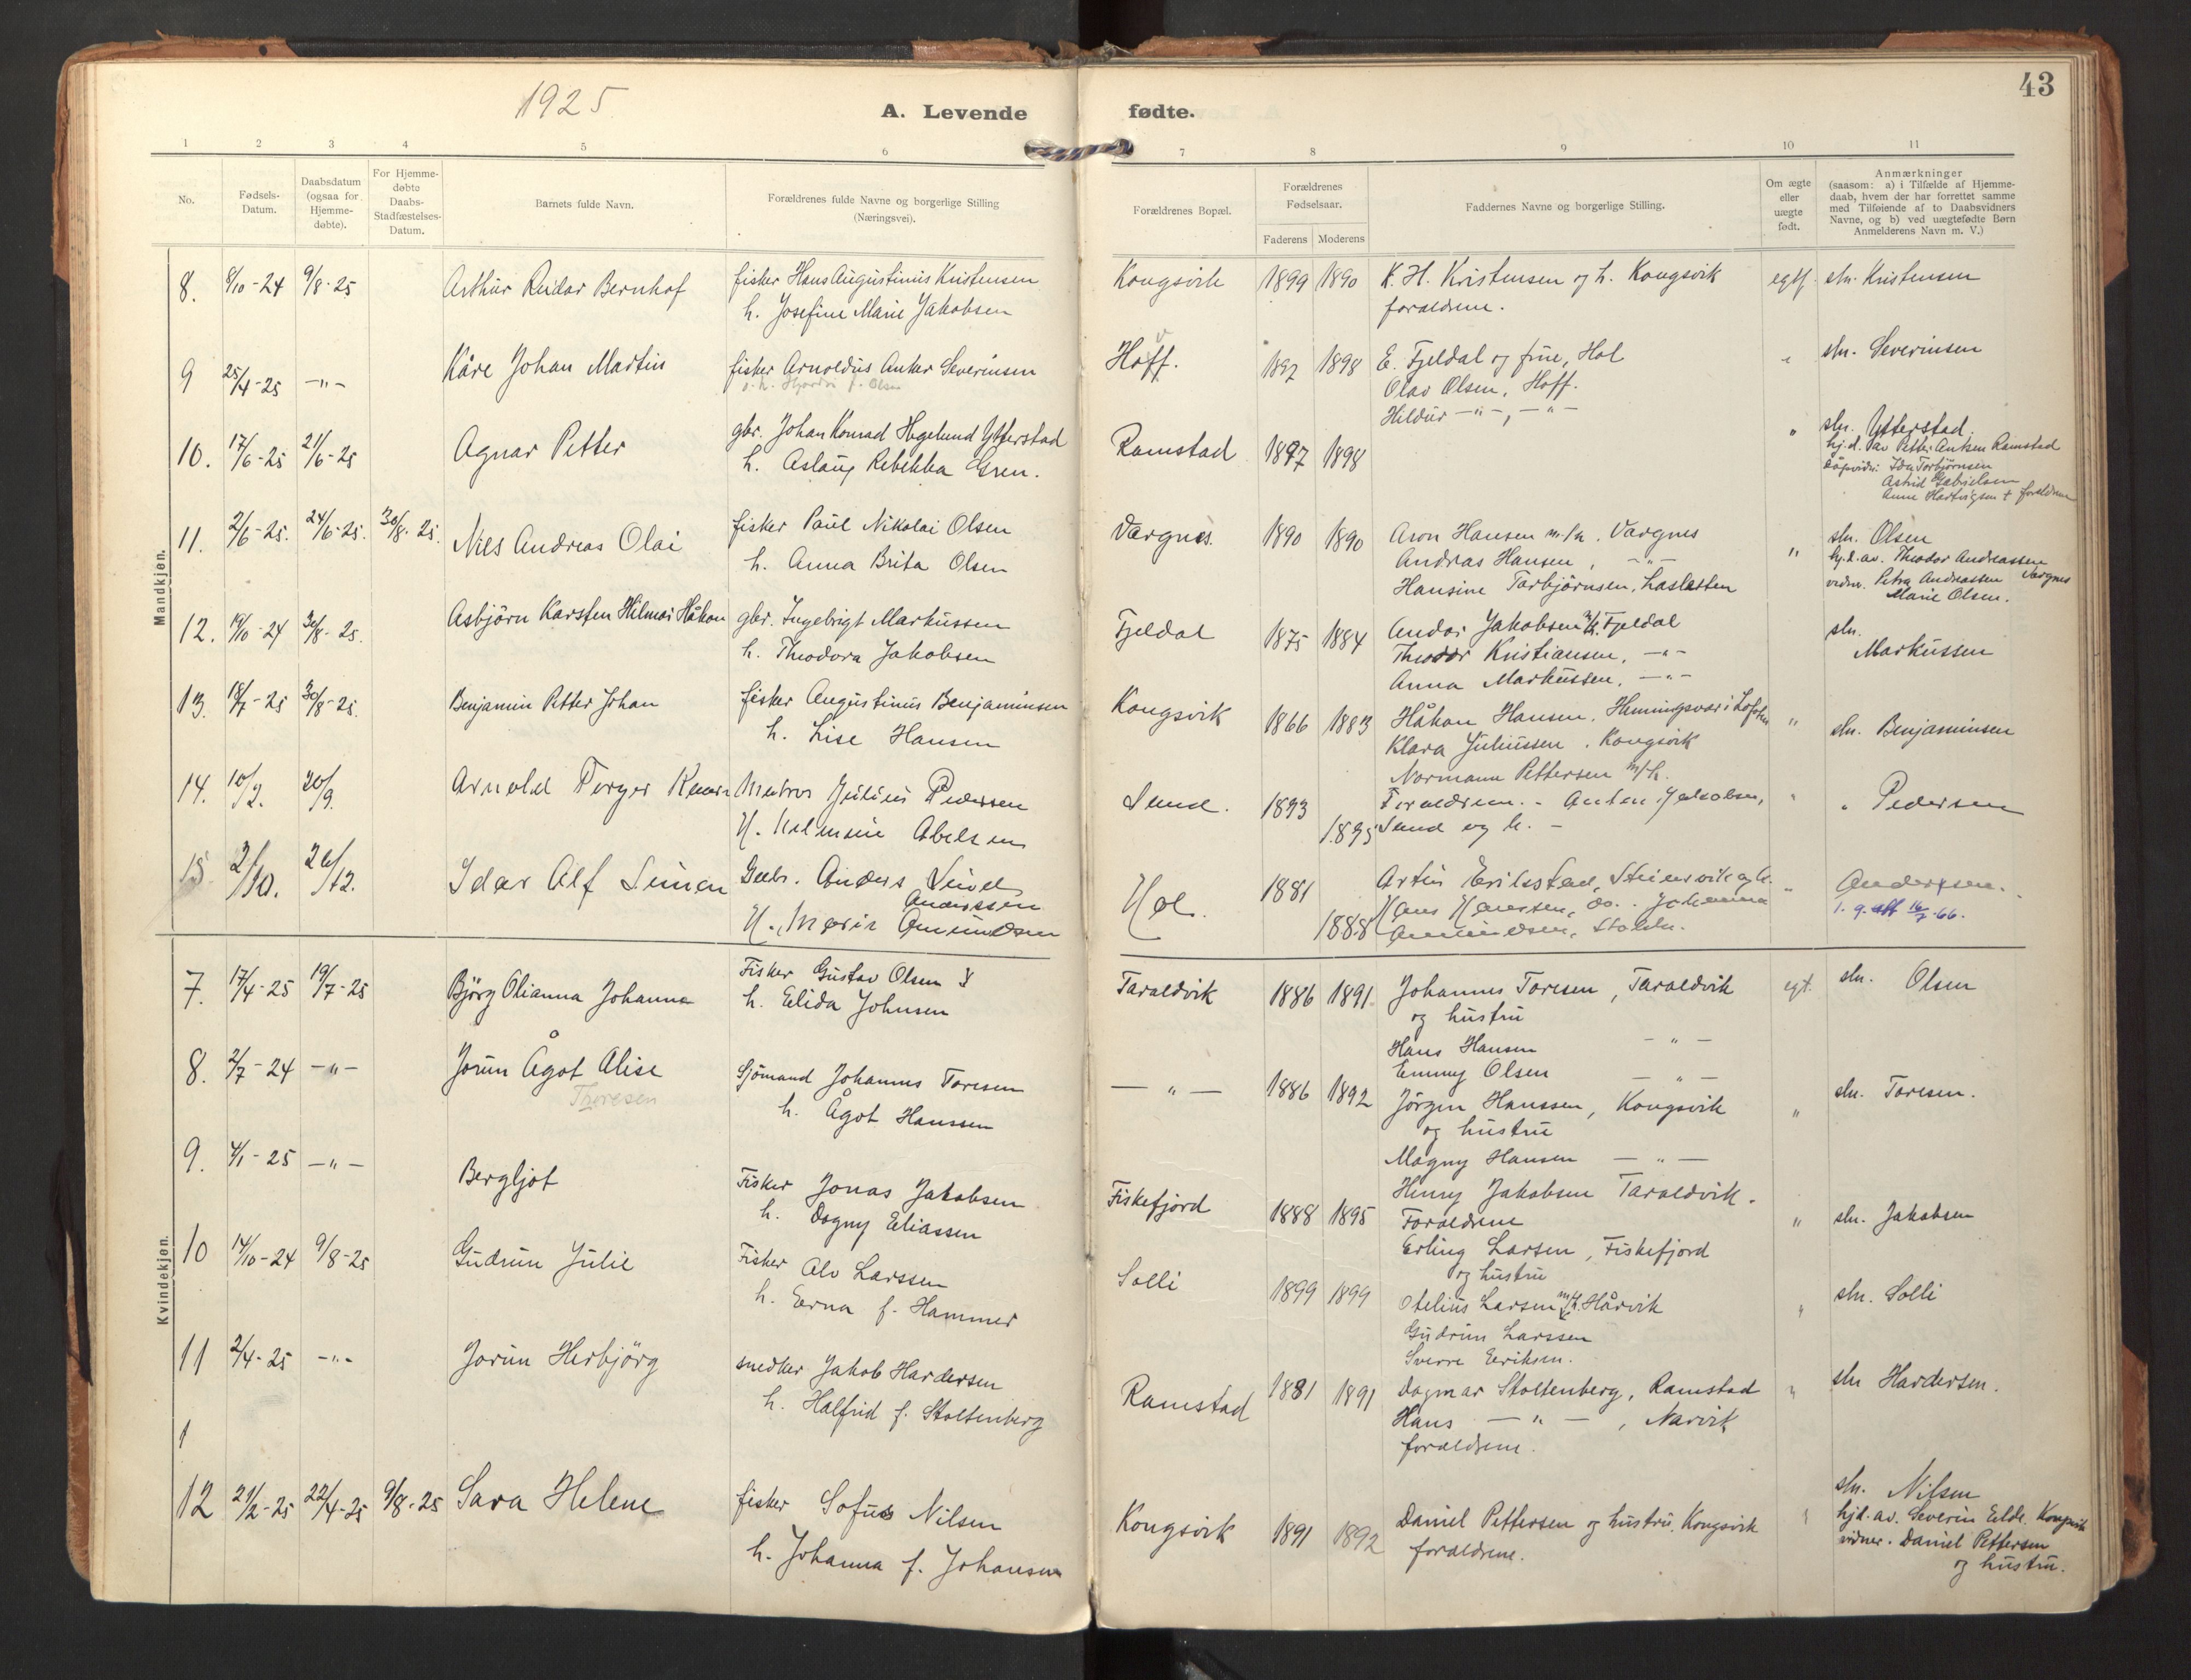 1925
A. Levende
No.
Fødsels-
Datum.
Daabsdatum
(ogsaa for
Hjemme-
døbte).
For Hjemme-
døbte
Daabs-
Stadfæstelses-
Datum.
Barnets fulde Navn.
Forældrenes fulde Navne og borgerlige Stilling
(Næringsvei).
1 2 3 4 5 6
Mandkjøn.
8. 8/10-24 9/8-25 Arthur Reidar Bernhof fisker Hans Augustinus Kristensen
h. Josefine Marie Jakobsen
9 25/4-25 -"- Kåre Johan Martin fisker Arnoldus Anker Severinsen
10. 17/6-25 21/6-25 Agnar Petter gbr. Johan Konrad Hegelund Ytterstad
h. Aslaug Rebekka Gren.
11. 2/6-25. 24/6-25. 30/8-25. Nils Andreas Olai fisker Paul Nikolai Olsen
h. Anna Brita Olsen
12. 19/10-24 30/8-25. Asbjörn Karsten Hilmar Håkon gbr. Ingebrigt Markussen
h. Theodora Jakobsen
13. 18/7-25 30/8-25. Benjamin Petter Johan fisker Augustinus Benjaminsen
h. Lise Hansen
14. 10/2. 20/9. Arnold Torger Julius Pedersen
H. Abelsen
15 2/10. 26/12. Idar Alf Gbr. Anders
Anderssen
H. Marie Amundsen
Kvindekjøn.
7. 17/4-25 19/7-25 Björg Olianna Johanna Fisker Gustav Olsen
h. Elida Johnsen
8. 2/7-24 -"- Jorun Ågot Alise Sjömand Johannes Toresen
Thoresen
h. Ågot Hanssen
9. 4/1-25 -"- Bergljot Fisker Jonas Jakobsen
h. Dagny Eliassen
10 14/10-24 9/8-25 Gudrun Julie Fisker Alv Larssen
h. Erna f. Hammer
11 2/4-25 -"- Jorun Herbjörg snedker Jakob Hardersen
h. Halfrid f. Stoltenberg
1
12 21/2-25 22/4-25 9/8-25 Sara Helene fisker Sofus Nilsen
h. Johanna f. Johansen
43
fødte.
7 8 9 10 11
Forældrenes Bopæl.
Forældrenes
Fødselsaar.
Faderens Moderens
Faddernes Navne og borgerlige Stilling.
Om ægte
eller
uægte
født.
Anmærkninger
(saasom: a) i Tilfælde af Hjemme-
daab, hvem der har forrettet samme
med Tilføiende af to Daabsvidners
Navne, og b) ved uægtefødte Børn
Anmelderens Navn m. V.)
Kongsvik 1899 1890 K. H. Kristensen og h. Kongsvik sln. Kristensen
foraldrene.
Hoff. 1897 1898 E. Fjeldal og frue, Hol sln. Severinsen
Olav Olsen, Hoff.
Hildur -"-, -"-
Ramstad 1897 1898 " sln. Ytterstad.
hj.d. av Petter Antsen Ramstad
Ida Torbjörnsen
Astrid Gabrielsen
Anna Hartvigsen + foreldrene
Vargnes. 1890 1890 Aron Hansen m/h. Vargnes " sln. Olsen
Andreas Hansen, -"- hj.d. av. Theodor Andreassen
Hansine Torbjörnsen, vidner. Petra Andreassen Vargnes
Marie Olsen.
Fjeldal 1875 1884 Andor Jakobsen m/h. Fjeldal sln.
Theodor Kristiansen, -"- Markussen
Anna Markussen, -"-
Kongsvik 1866 1883 Håkon Hansen, Henningsvær i Lofoten " sln. Benjaminsen
Klara Juliussen, Kongsvik
Normann Pettersen m/h.
Sund. 1893 Foraldrene. - Anton Jakobsen, " " Pedersen
1895 Sund og h. -
Hol. 1881 Artur Erikstad, Steinsvik og h. " Anderssen.
1888 Hans Hansen, do. Johanna
Amundsen,
16/7-66.
Taraldvik 1886 1891 Johannes Toresen, Taraldvik egt. sln. Olsen
og hustru
Hans Hansen -"-
Emmy Olsen -"-
-"- 1886 1892 Jörgen Hanssen, Kongsvik " sln. Toresen.
og hustru
Magny Hansen -"-
Henry Jakobsen Taraldvik.
Fiskefjord 1888 1895 Foraldrene " sln. Jakobsen
Erling Larsen, Fiskefjord
og hustru
Solli 1899 1899 Otelius Larsen m/h. Hårvik " sln. Solli
Gudrun Larssen
Sverre Eeriksen.
Ramstad 1881 1891 Dagmar Stoltenberg, Ramstad " sln Hardersen.
Hans -"-, Narvik
foraldrene.
Kongsvik 1891 1892 Daniel Pettersen og hustru, Kongsvik " sln. Nilsen
foraldrene.
hjd. av. Severin Eelde. Kongsvik
vidner. Daniel Pettersen
og hustru.